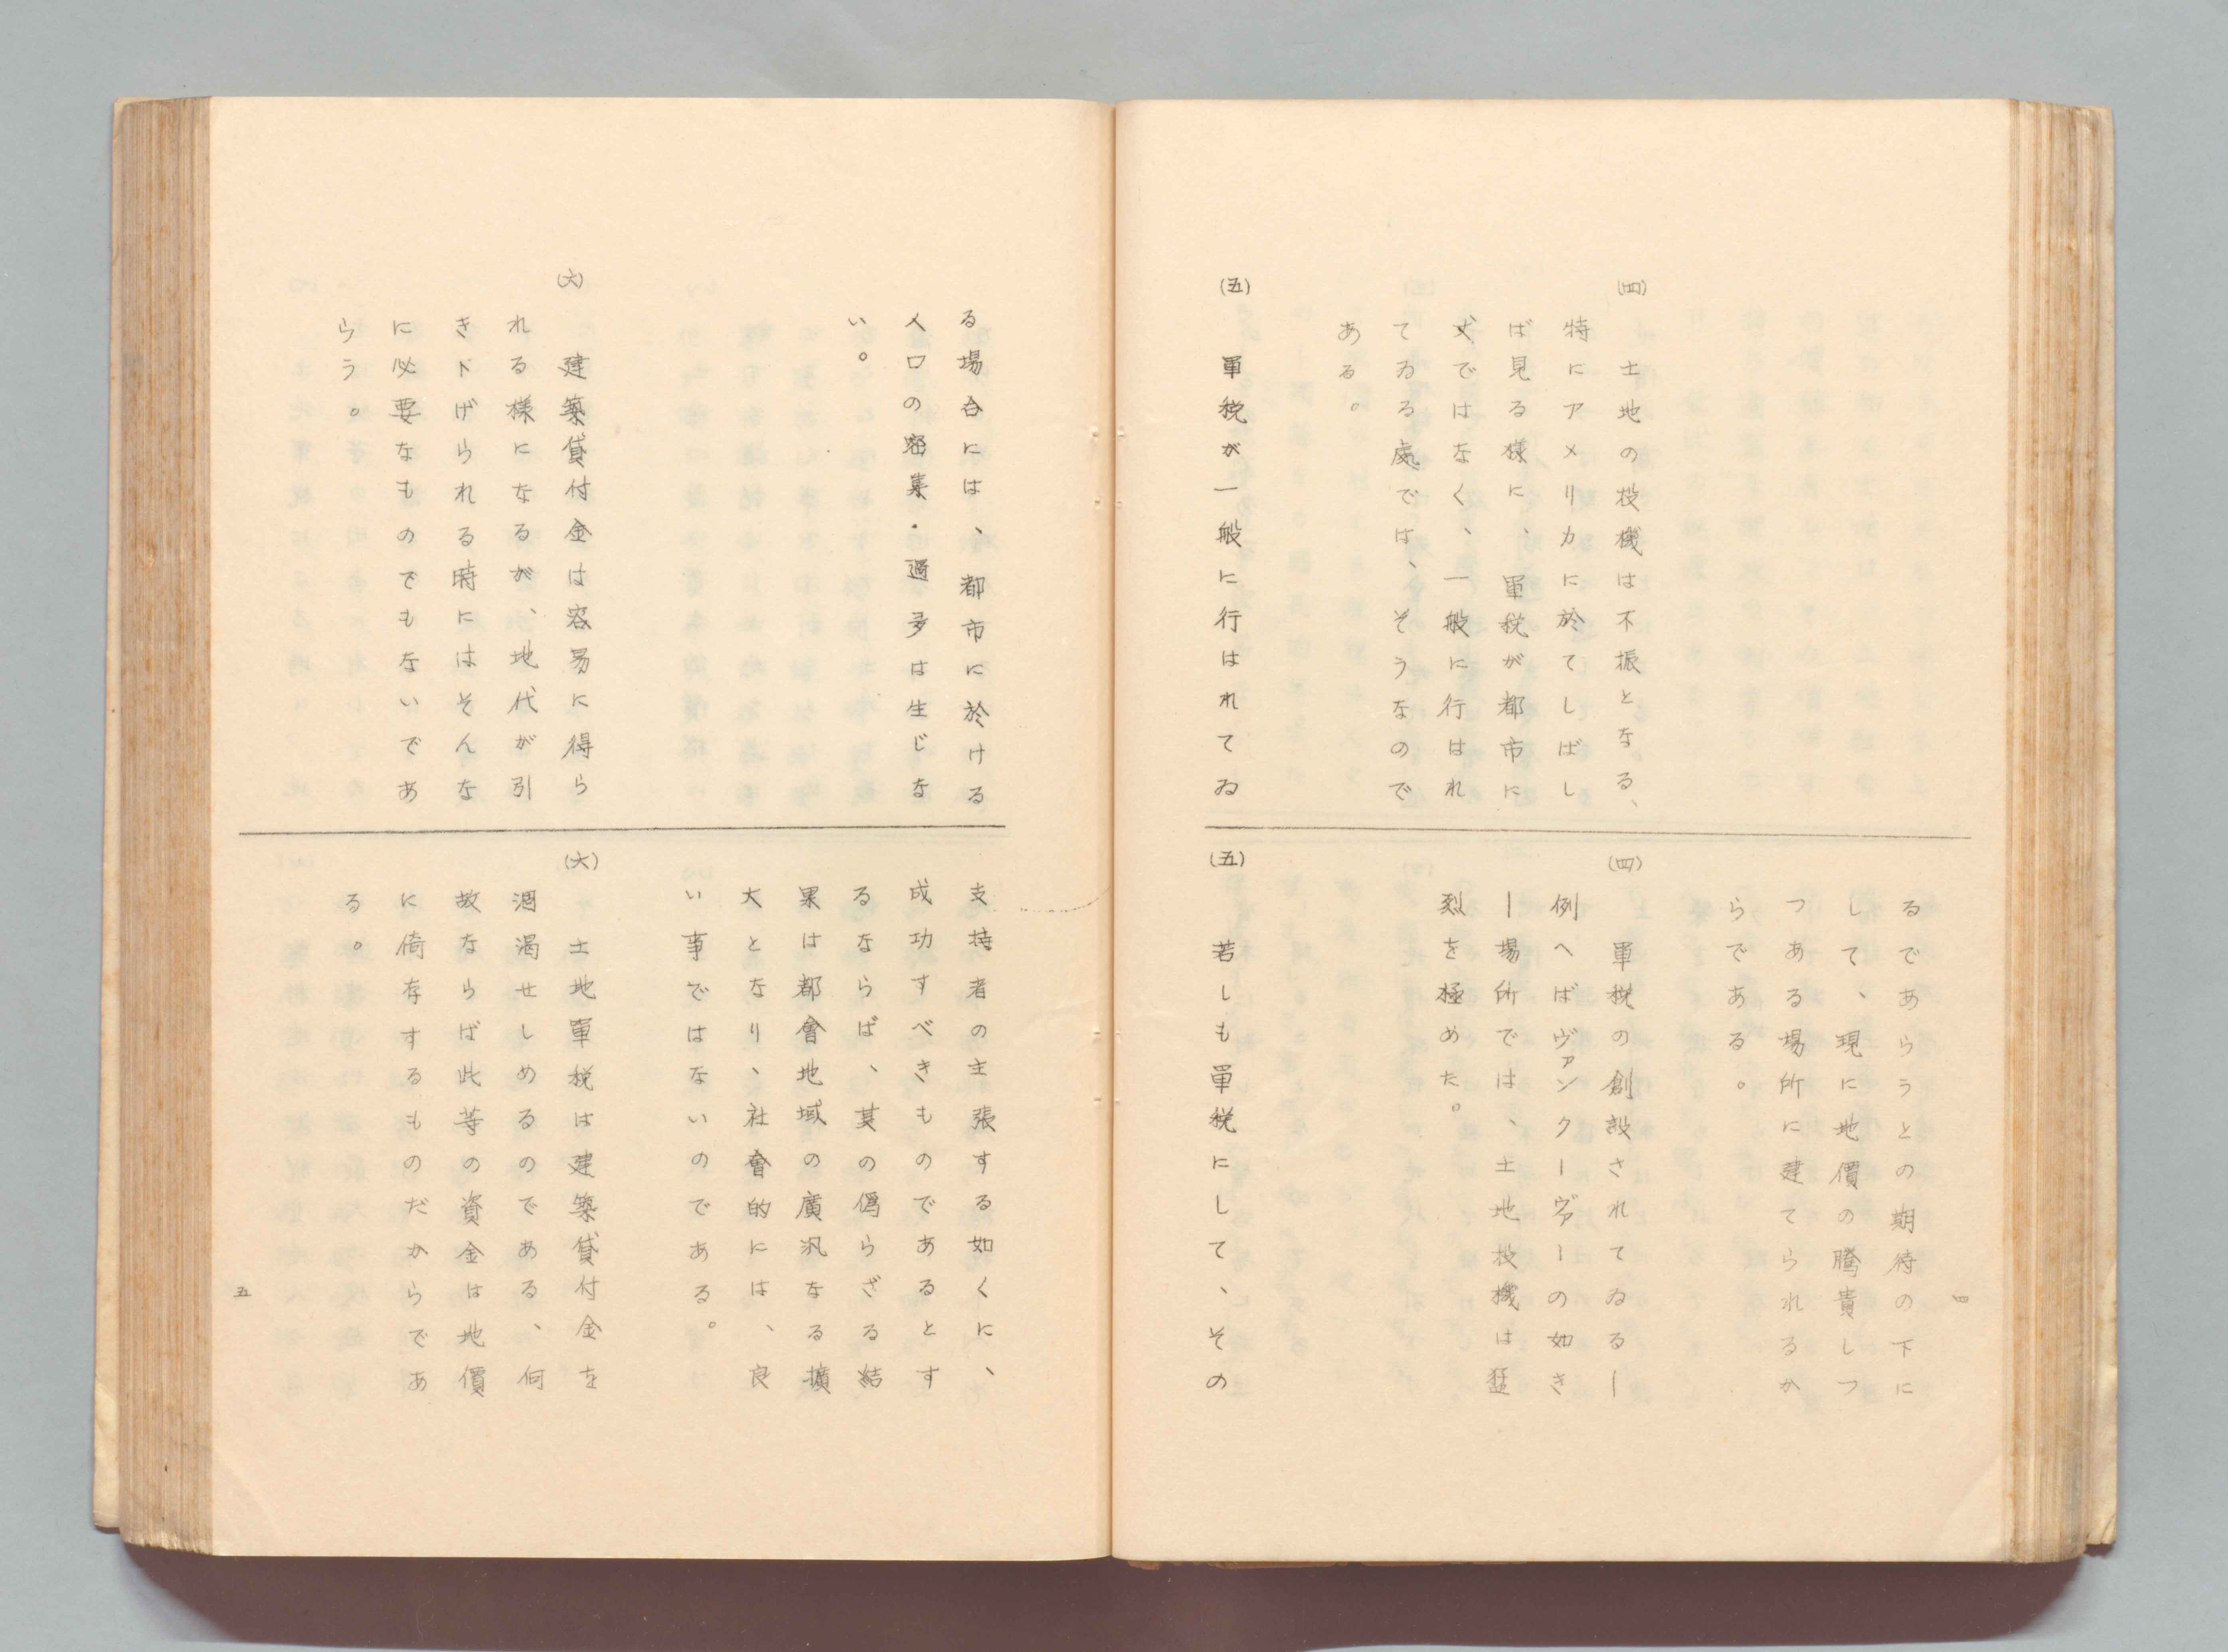 (四) 土地の投機は不振となる、
特にアメリカに於てしばし
ば見る様に、單税が都市に
丈ではなく、一般に行はれ
てゐる處では、そうなので
ある。
(五) 單税が一般に行はれてゐ
るであらうとの期待の下に
して、現に地價の騰貴しつ
つある場所に建てられるか
らである。
(四) 單税の創設されてゐる―
例へばヴァンクーヴァーの如き
―場所では、土地投機は猛
烈を極めた。
(五) 若しも單税にして、その
四
る場合には、都市に於ける
人口の密集・過多は生じな
い。
(六) 建築貸付金は容易に得ら
れる様になるが、地代が引
き下げられる時にはそんな
に必要なものでもないであ
らう。
支持者の主張する如くに、
成功すべきものであるとす
るならば、其の僞らざる結
果は都會地域の廣汎なる擴
大となり、社會的には、良
い事ではないのである。
(六) 土地單税は建築貸付金を
涸渇せしめるのである、何
故ならば此等の資金は地價
に倚存するものだからであ
る。
五